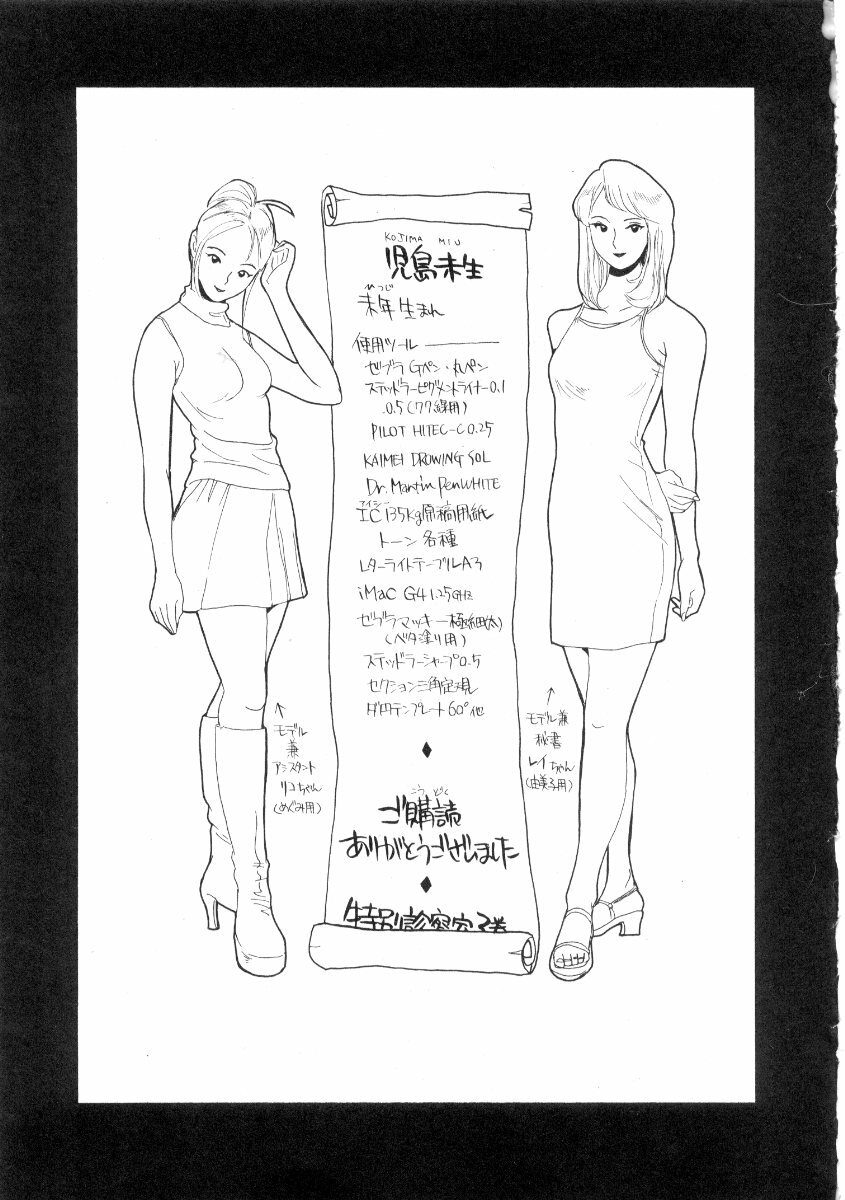 KOJIMA MIU
児島未生
ひつじ
未年生まれ
使用ツール
ゼブラ Gペン・丸ペン
ステッドラーピグメントライナー0.1
0.5(ワク線用)
PILOT HITEC-C 0.25
KAIMEI DROWING SOL
Dr. Martin Pen WHITE
アイシー
IC 135kg原稿用紙
トーン各種
LターライトテーブルA3
iMac G4 1.25GHz
ゼブラマッキー極細(太)
(ベタ塗り用)
ステッドラーシャープ0.5
セクション三角定規
ダ円テンプレート60°他
こう どく
ご購読
ありがとうございました
特別診察室 2巻
↑
モデル
兼
アシスタント
リコちゃん
(めぐみ用)
↑
モデル兼
秘書
レイちゃん
(由美子用)